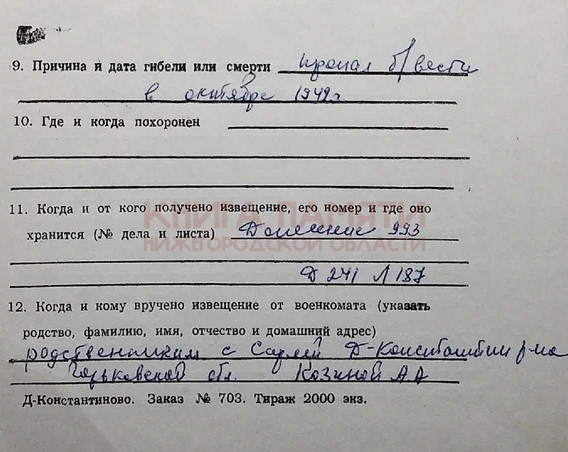 9. Причина и дата гибели или смерти пропал б/вести
в октябре 1942г
10. Где и когда похоронен
11. Когда и от кого получено извещение, его номер и где оно
хранится (№ дела и листа) Донесение 993
Д 241 Л 187
КНИГА ПАМЯТИ
НИЖЕГОРОДСКОЙ ОБЛАСТИ
12. Когда и кому вручено извещение от военкомата (указать
родство, фамилию, имя, отчество и домашний адрес)
родственникам с Сарлей Д-Константин р-на
Горьковской обл. Козиной АА
Д-Константиново. Заказ № 703. Тираж 2000 экз.